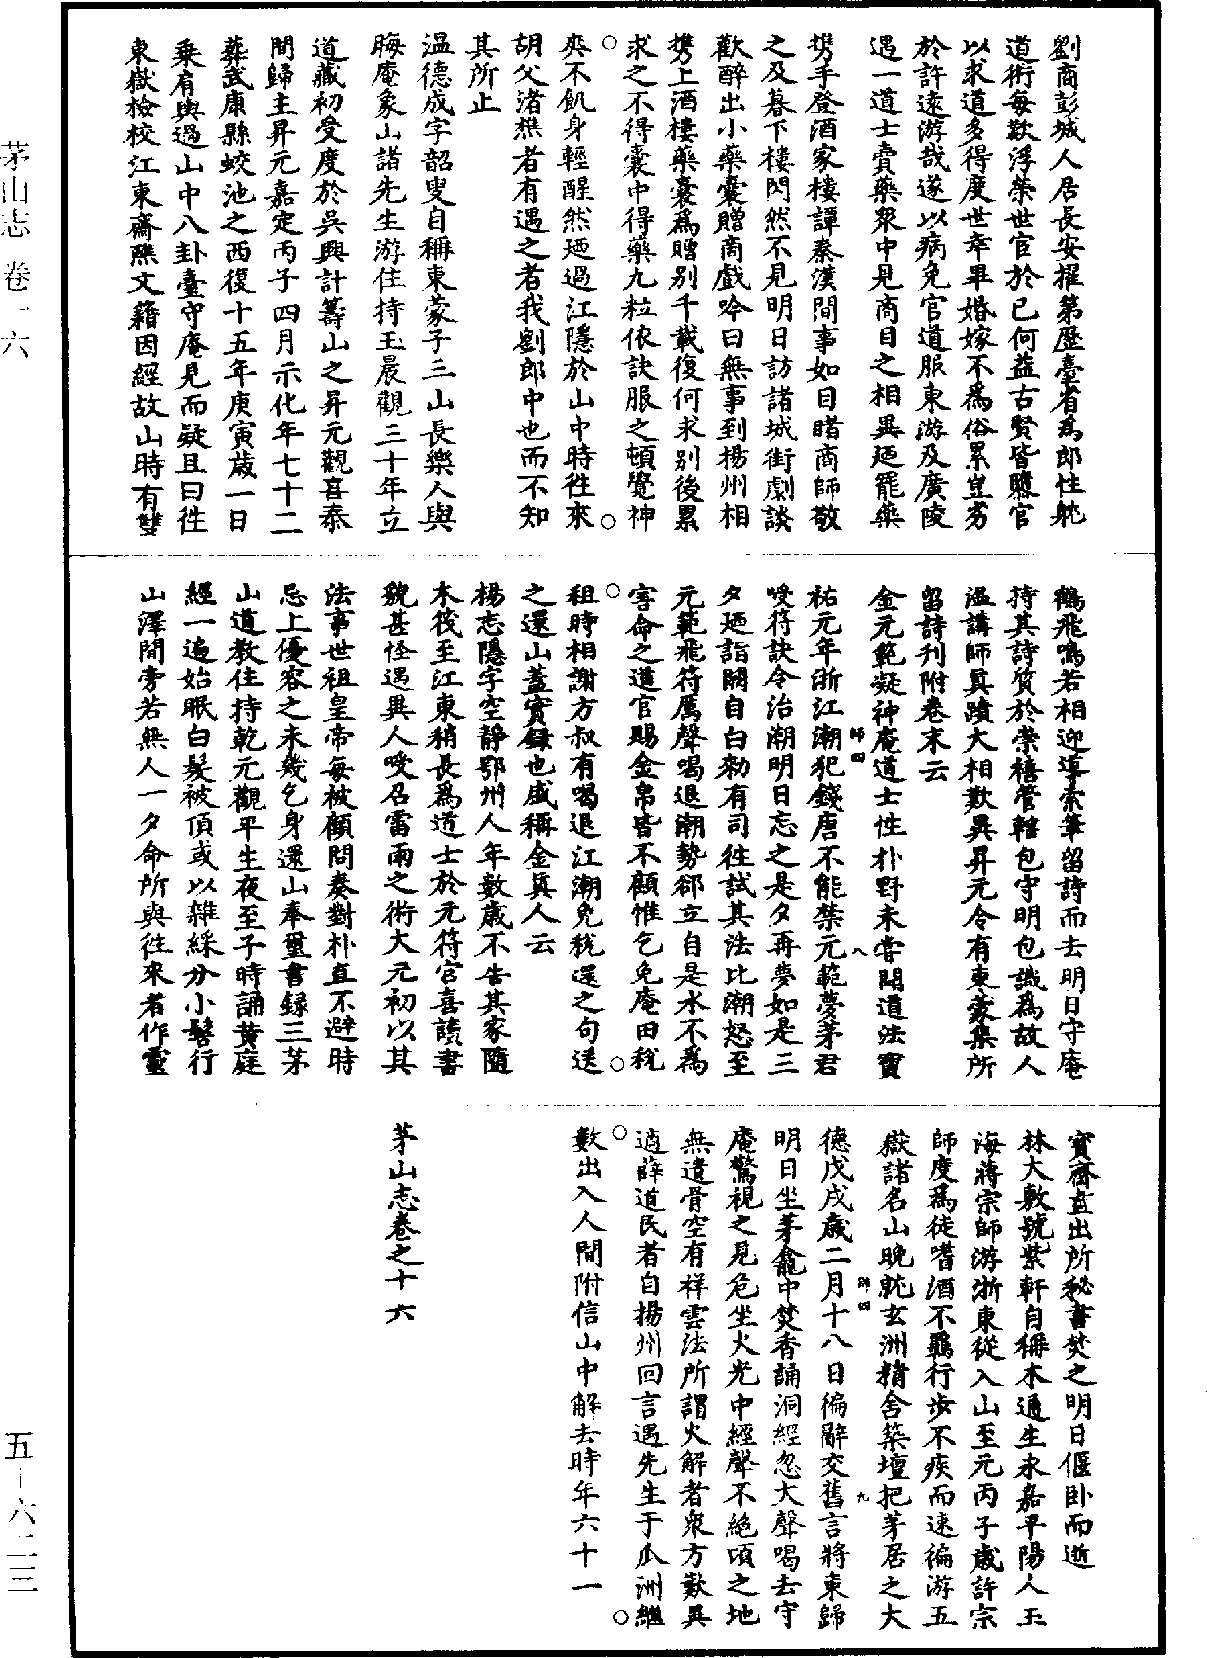 劉商彭城人居長安擢第歷臺省爲郎性躭
道術每歎浮榮世官於已何益古賢皆隳官
以求道多得度世幸畢婚嫁不爲俗累豈劣
於許遠游哉遂以病免官道服東游及廣陵
遇一道士賣藥衆中見商目之相異廼罷藥
携手登酒家樓譚秦漢間事如目睹商師敬
之及暮下樓閃然不見明日訪諸城街劇談
歡醉出小藥囊贈商戲吟曰無事到揚州相
携上酒樓藥囊爲贈別千載復何求別後累
求之不得囊中得藥九粒依訣服之頓覺神
爽不飢身輕醒然廼過江隱於山中時徃來
胡父渚樵者有遇之者我劉郎中也而不知
其所止
温德成字韶叟自稱東蒙子三山長樂人與
晦庵象山諸先生游住持玉晨觀三十年立
道藏初受度於吳興計籌山之昇元觀喜泰
間歸主昇元嘉定丙子四月示化年七十二
葬武康縣蛟池之西復十五年庚寅歲一日
乘肩輿過山中八卦臺守庵見而疑且曰徃
東嶽檢校江東齋醮文籍因經故山時有雙
鶴飛鳴若相迎導索筆留詩而去明日守庵
持其詩質於崇禧管轄包守明包識爲故人
温講師眞蹟大相歎異昇元今有東蒙集所
留詩刊附卷末云
金元範凝神庵道士性朴野未嘗閱道法寶
祐元年浙江潮犯錢唐不能禁元範夢茅君
受符訣令治潮明日忘之是夕再夢如是三
夕廼詣闕自白勑有司徃試其法比潮怒至
元範飛符厲聲喝退潮勢郤立自是水不爲
害命之道官賜金帛皆不顧惟乞免庵田稅
租時相謝方叔有喝退江潮免稅還之句送
之還山蓋實録也咸稱金眞人云
楊志隱字空靜鄂州人年數歲不告其家隨
木筏至江東稍長爲道士於元符宮喜讀書
貌甚怪遇異人受召雷雨之術大元初以其
法事世祖皇帝每被顧問奏對朴直不避時
忌上優容之未幾乞身還山奉璽書録三茅
山道教住持乾元觀平生夜至子時誦黃庭
經一遍始眠白髮被頂或以雜綵分小髻行
山澤間旁若無人一夕命所與徃來者作靈
寶齋盡出所秘書焚之明日偃卧而逝
林大敷號紫軒自稱木通生永嘉平陽人玉
海蔣宗師游浙東從入山至元丙子歲許宗
師度爲徒嗜酒不羈行步不疾而速徧游五
嶽諸名山晚就玄洲精舍築壇把茅居之大
德戊戌歲二月十八日徧辭交舊言將東歸
明日坐茅龕中焚香誦洞經忽大聲喝去守
庵驚視之見危坐火光中經聲不絕頃之地
無遺骨空有祥雲法所謂火解者衆方歎異
適薛道民者自揚州回言遇先生于瓜洲繼
數出入人間附信山中解去時年六十一
茅山志卷之十六
師四
八
師四
九
茅山志 卷一六
五-六二三